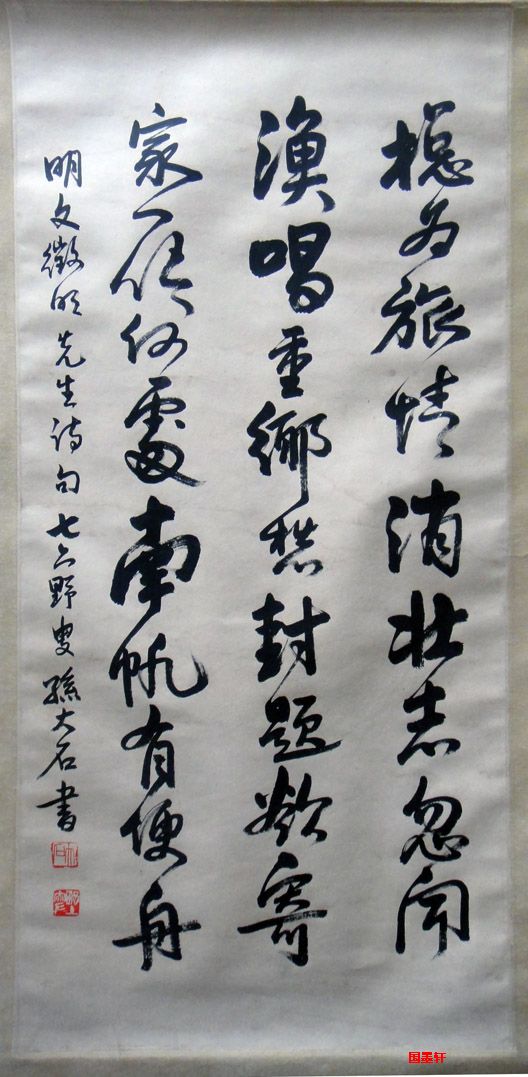 摠為旅情消壯志忽聞
漁唱重鄉愁封題欲寄
家一信何處南帆有便舟
明文徵明先生詩句七六野叟孫大石書
国墨轩